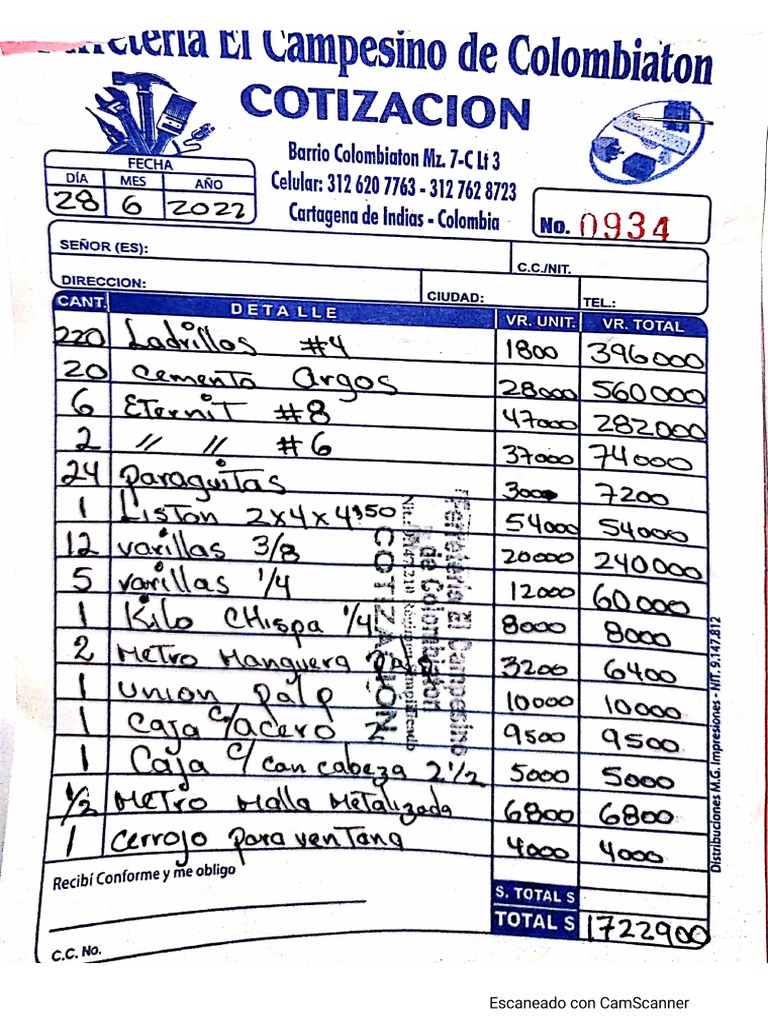 Ferretería El Campesino de Colombiaton
COTIZACION
Barrio Colombiaton Mz. 7-C Lt 3
Celular: 312 620 7763 - 312 762 8723
Cartagena de Indias - Colombia
FECHA
DÍA MES AÑO
28 6 2022
No. 0934
SEÑOR (ES):
C.C./NIT.
DIRECCION: CIUDAD: TEL.:
CANT. DETALLE VR. UNIT. VR. TOTAL
220 Ladrillos #4 1800 396000
20 cemento Argos 28000 560000
6 Eternit #8 47000 282000
2 // // #6 37000 74000
24 paraguitas 300 7200
1 Liston 2x4x4$50 54000 54000
12 varillas 3/8 20000 240000
5 varillas 1/4 12000 60000
1 Kilo CHispa 1/4 8000 8000
2 Metro Manguera 3200 6400
1 union palp 10000 10000
1 Caja c/acero 2 9500 9500
1 Caja c/ can cabeza 2 1/2 5000 5000
1/2 Metro Malla Metalizada 6800 6800
1 cerrojo para ventana 4000 4000
Recibí Conforme y me obligo
S. TOTAL $
TOTAL $ 1722900
C.C. No.
Ferretería El Campesino
de Colombiaton
COTIZACION
Distribuciones M.G. Impresiones - NIT. 9.147.812
Escaneado con CamScanner